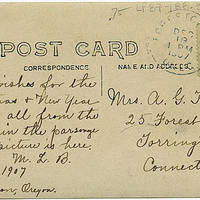 75 487
DEC
18
1 PM
POST CARD
CORRESPONDENCE
NAME AND ADDRESS
ishes for the
as & New Year
all from the
in the parsonage
picture is here.
M. L. B.
1907
on, Oregon.
Mrs. A. G. F
25 Forest
Torring
Connect